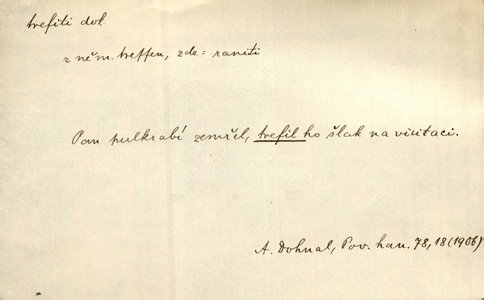 trefiti dok
z něm. treffen, zde: raniti
Pan pulkrabí zemřel, trefil ho šlak na visitaci.
A. Dohnal, Pov. han. 78, 18 (1906)